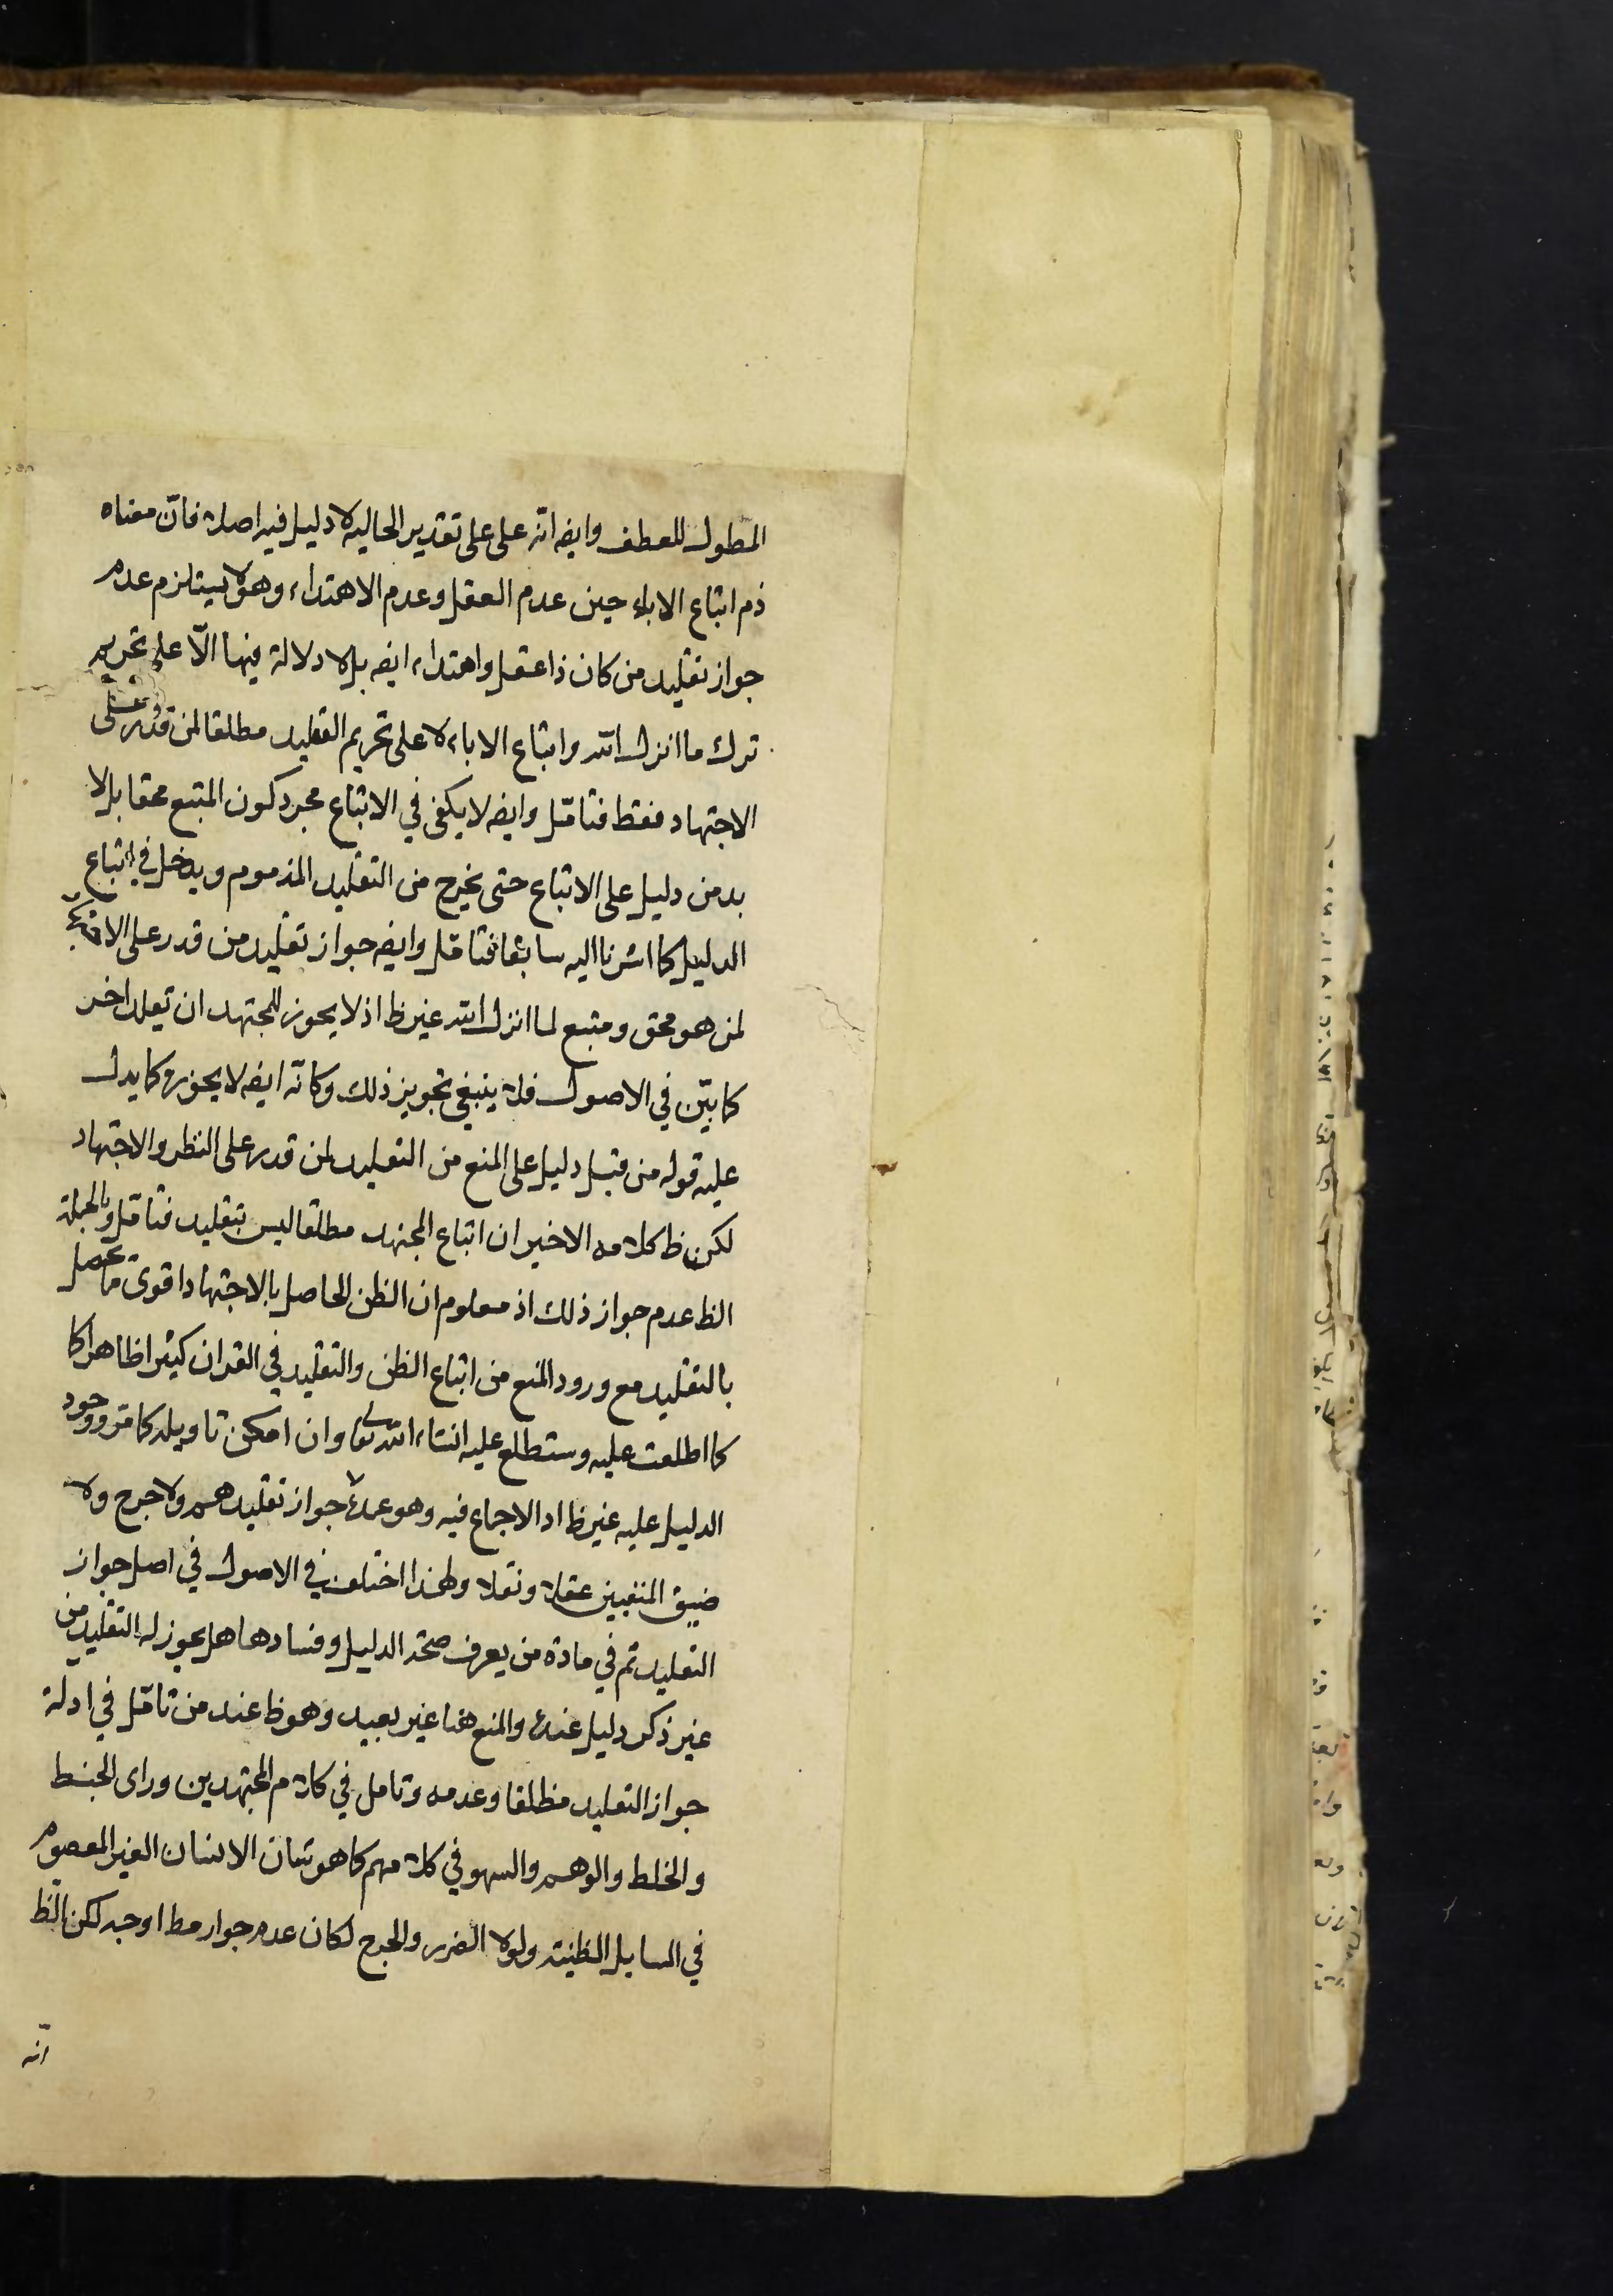 المطول للعطف وايضه انه على على تقدير الحاليه لا دليل فيه اصلا فان معناه
ذم اتباع الاباء حين عدم العقل وعدم الاهتداء وهو لا يستلزم عدم
جواز تقليد من كان ذا عقل واهتداء ايضه بل لا دلالة فيها الّا على تحريم
ترك ما انزل الله واتباع الاباء لا على تحريم التقليد مطلقا لمن قدر على
الاجتهاد فقط فتامّل وايضه لا يكفى في الاتباع مجرد كون المتبع محقا بل لا
بد من دليل على الاتباع حتى يخرج من التقليد المذموم ويدخل في اتباع
الدليل كما اشرنا اليه سابقا فتامّل وايضه جواز تقليد من قدر على
لمن هو محق ومتبع لما انزل الله غير ظ اذ لا يجوز للمجتهد ان تقلد اخر
كما بيّن في الاصول فلا ينبغي تجويز ذلك وكانّه ايضه لا يجوزه كما يدل
عليه قوله من قبل دليل على المنع من التقليد لمن قدر على النظر والاجتهاد
لكن ظ كلامه الاخير ان اتباع المجتهد مطلقا ليس بتقليد فتامّل وبالجملة
الظ عدم جواز ذلك اذ معلوم ان الظن الحاصل بالاجتهاد اقوى مما يحصل
بالتقليد مع ورود المنع من اتباع الظن والتقليد في القران كثيرا ظاهرا كما
كما اطلعت عليه وستطلع عليه انشاء الله تعالى وان امكن تاويله كما مر ووجود
الدليل عليه غير ظ اذ الاجماع فيه وهو عمدة جواز تقليدهم ولا حرج ولا
ضيق المنفيين عقلا ونقلا ولهذا اختلف في الاصول في اصل جواز
التقليد ثم في مادة من يعرف صحة الدليل وفسادها هل يجوز له التقليد من
غير ذكر دليل عنده والمنع هنا غير بعيد وهو ظ عند من تامّل في ادلة
جواز التقليد مطلقا وعدمه وتامل في كلام المجتهدين وراى الخبط
والخلط والوهم والسهو في كلامهم كما هو شان الانسان الغير المعصوم
في المسايل الظنية ولولا الضرر والحرج لكان عدم جواز مط اوجه لكن الظ
انه